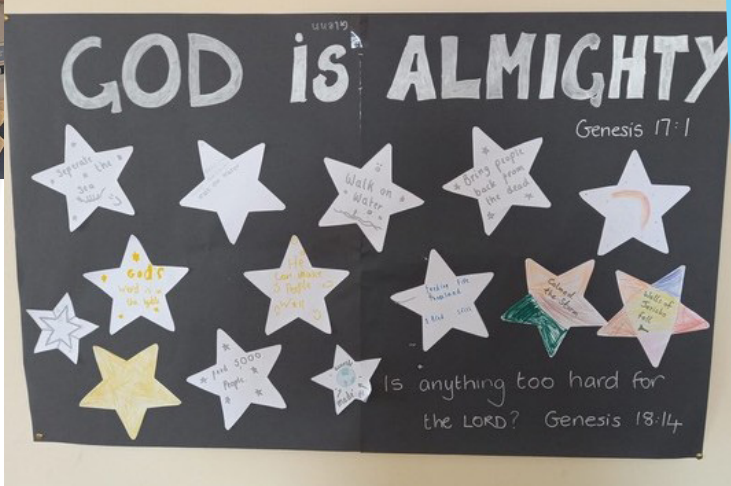 Glenn
GOD is ALMIGHTY
Genesis 17:1
Seperate
the
Sea
Walk on
Water
Bring people
back from
the dead
God's
word is
the light
He
can make
People
Calmed
the Storm
Walls of
Jericho
fell
feed 5,000
People
Is anything too hard for
the LORD? Genesis 18:14